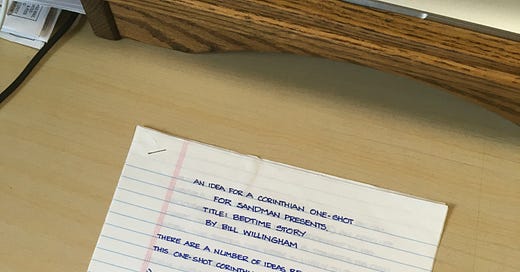 AN IDEA FOR A CORINTHIAN ONE-SHOT
FOR SANDMAN PRESENTS.
TITLE: BEDTIME STORY
BY BILL WILLINGHAM
THERE ARE A NUMBER OF IDEAS
THIS ONE-SHOT